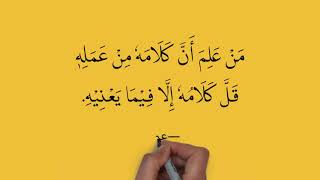 مَنْ عَلِمَ أَنَّ كَلَامَهُ مِنْ عَمَلِهِ
قَلَّ كَلَامُهُ إِلَّا فِيمَا يَعْنِيْهِ.